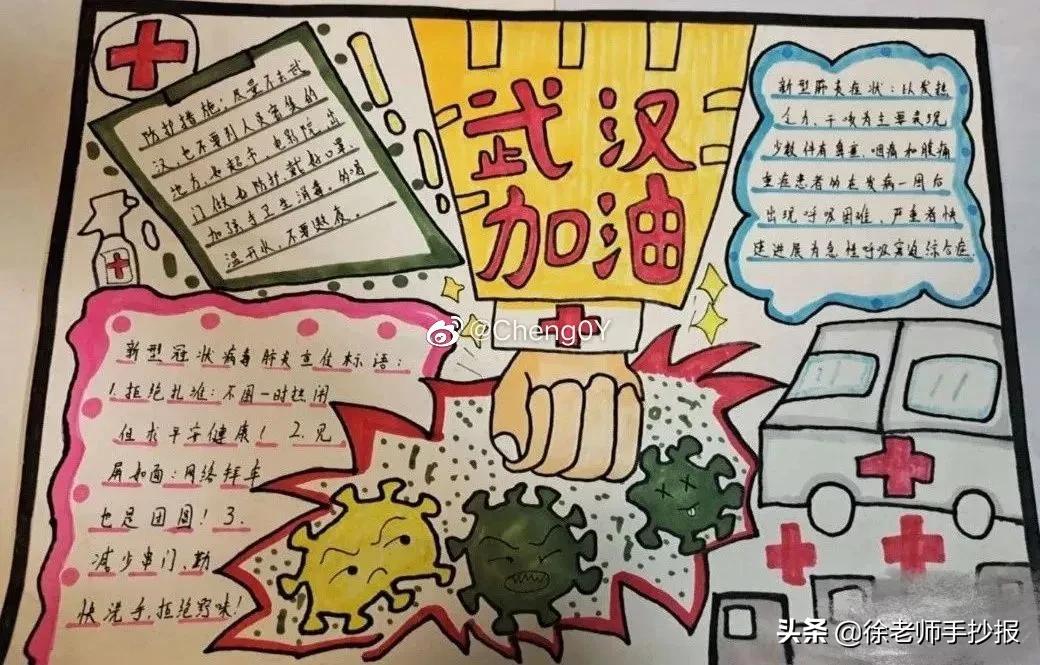 防护措施：尽量不去武
汉，也不要到人员密集的
地方，如超市，电影院，出
门做好防护，戴好口罩，
加强手卫生消毒，的喝
温开水，不要熬夜。
武汉
加油
新型肺炎症状：以发热
全力、干咳为主要表现
少数伴有鼻塞，咽痛和腹痛
重症患者的在发病一周后
出现呼吸困难，严重者快
速进展为急性呼吸窘迫综合症
@Cheng0Y
新型冠状病毒肺炎宣传标语：
1.拒绝扎准：不图一时热闹
但求平安健康！2.见
屏如面：网络拜年
也是团圆！3.
减少串门、勤
快洗手，拒绝野味！
头条 @徐老师手抄报